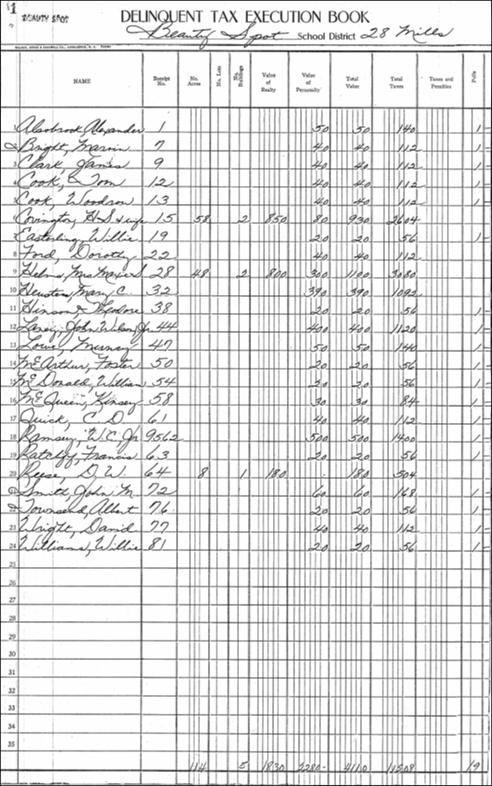 1
BEAUTY SPOT
DELINQUENT TAX EXECUTION BOOK
Beauty Spot School District 28 Mills
NAME Receipt No. No. Acres No. Lots No. Buildings Value of Realty Value of Personalty Total Value Total Taxes Taxes and Penalties Polls
1 Alsobrook, Alexander 1 50 50 140 1-
2 Bright, Marvin 7 40 40 112 1-
3 Clark, James 9 40 40 112 1-
4 Cook, Tom 12 40 40 112 1-
5 Cook, Woodrow 13 40 40 112 1-
6 Covington, H S & wife 15 58 2 850 80 930 2604
7 Easterling, Willie 19 20 20 56 1-
8 Ford, Dorothy 22 40 40 112
9 Helms, Mrs 28 48 2 800 300 1100 3080
10 Mary C. 32 390 390 1092
11 Hinson, Theodore 38 20 20 56 1-
12 Laney, John Wilson, Jr. 44 400 400 1120 1-
13 Lowe, Murray 47 50 50 140 1-
14 McArthur, Foster 50 20 20 56 1-
15 McDonald, William 54 20 20 56 1-
16 McQueen, Kinsey 58 30 30 84 1-
17 Quick, C D. 61 40 40 112 1-
18 Ramsey, W. C. Jr. 9562 500 500 1400 1-
19 Francis 63 20 20 56 1-
20 Reese, D. W. 64 8 1 180 180 504
21 Smith, John M. 72 60 60 168 1-
22 Townsend, Albert 76 20 20 56 1-
23 Wright, David 77 40 40 112 1-
24 Williams, Willie 81 20 20 56 1-
25
26
27
28
29
30
31
32
33
34
35
114 5 1830 2280- 4110 11508 19